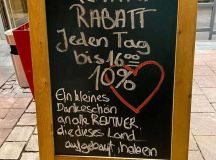 RABATT
Jeden Tag
bis 16:00
10%
Ein kleines
Dankeschön
an alle RENTNER
die dieses Land
aufgebaut haben